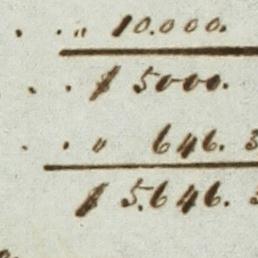 . . „ 10.000.
. . $ 5000.
. . „ 646. 3
$ 5.646. 3